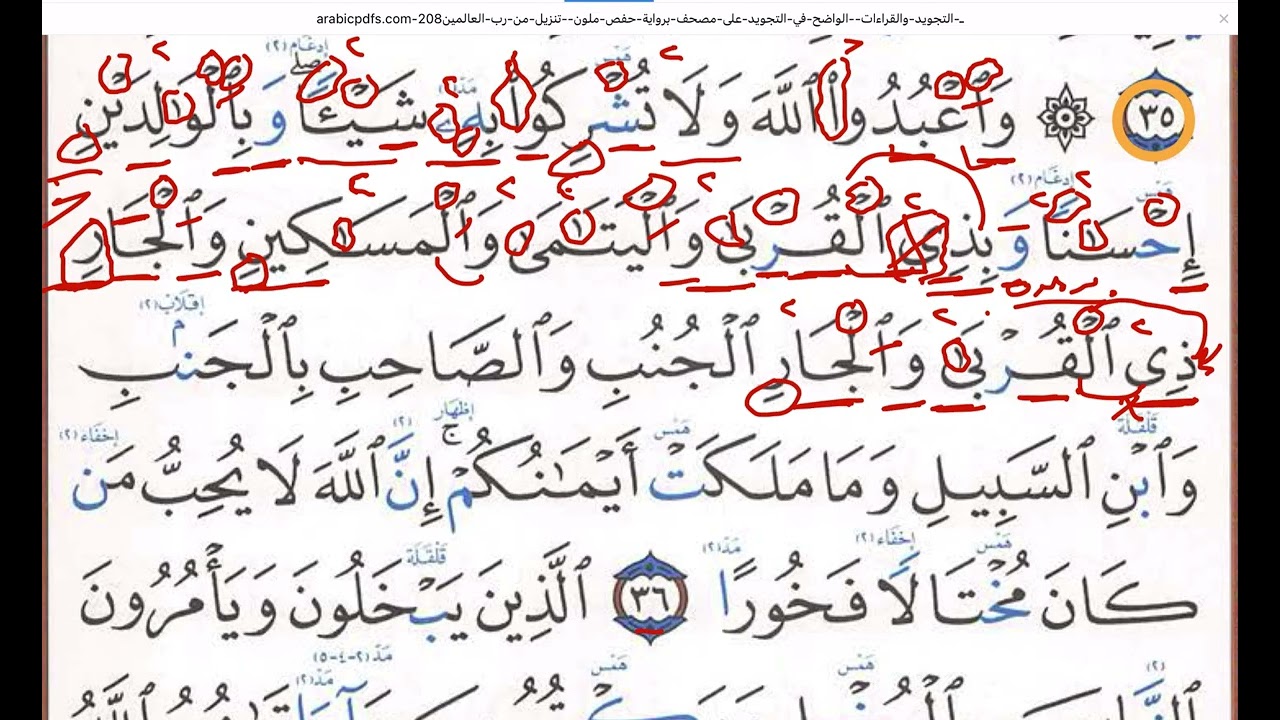 ـ-التجويد-والقراءات--الواضح-في-التجويد-على-مصحف-برواية-حفص-ملون--تنزيل-من-رب-العالمين208-arabicpdfs.com
إدغام (٢) همس
٣٥ ۞ وَٱعْبُدُوا۟ ٱللَّهَ وَلَا تُشْرِكُوا۟ بِهِۦ شَيْـًٔا ۖ وَبِٱلْوَٰلِدَيْنِ
همس إدغام (٢)
إِحْسَٰنًا وَبِذِى ٱلْقُرْبَىٰ وَٱلْيَتَٰمَىٰ وَٱلْمَسَٰكِينِ وَٱلْجَارِ
إقلاب (٢)
ذِى ٱلْقُرْبَىٰ وَٱلْجَارِ ٱلْجُنُبِ وَٱلصَّاحِبِ بِٱلْجَنۢبِ
قلقلة همس إظهار (٢) إخفاء (٢)
وَٱبْنِ ٱلسَّبِيلِ وَمَا مَلَكَتْ أَيْمَٰنُكُمْ ۚ إِنَّ ٱللَّهَ لَا يُحِبُّ مَن
همس إخفاء (٢) مد (٢) قلقلة
كَانَ مُخْتَالًا فَخُورًا ٣٦ ٱلَّذِينَ يَبْخَلُونَ وَيَأْمُرُونَ
(٢) همس همس مد (٢) مد (٢-٤-٥)